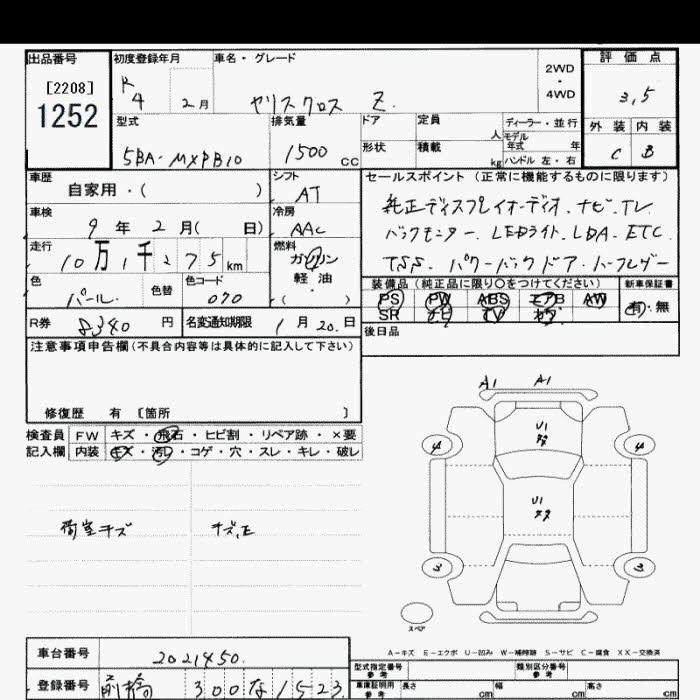 出品番号
[2208]
1252
初度登録年月
R 4 2月
車名・グレード
ヤリスクロス Z.
2WD
・
4WD
評価点
3.5
外装 内装
C B
型式
5BA-MXPB10
排気量
1500 CC
ドア
形状
定員 人
積載 kg
ディーラー・並行
モデル
年式 年
ハンドル 左・右
車歴
自家用・( )
シフト
AT
車検
9年 2月( 日)
冷房
AAC
走行
10万1千275km
燃料
ガソリン
・
軽油
( )
色
パール.
色替
色コード
070
R券 8340 円
名変通知期限 1月20.日
セールスポイント (正常に機能するものに限ります)
純正ディスプレイオーディオ.ナビ.TV.
バックモニター.LEDライト.LDA.ETC
TSS.パワーバックドア.
装備品 (純正品に限り○をつけてください)
新車保証書
PS PW ABS エアB AW
SR ナビ TV カワ
有・無
後日品
注意事項申告欄(不具合内容等は具体的に記入して下さい)
修復歴 有 [箇所 ]
検査員
記入欄
FW キズ・飛石・ヒビ割・リペア跡・×要
内装 キズ・汚レ・コゲ・穴・スレ・キレ・破レ
荷室キズ
A1 A1
U1
U1
スペア
A-キズ E-エクボ U-凹み W-補修跡 S-サビ C-腐食 XX-交換済
車台番号
2021450.
登録番号
前橋 300 な 1523
型式指定番号
参考
類別区分番号
参考
車庫証明用
参考
長さ cm
幅 cm
高さ cm